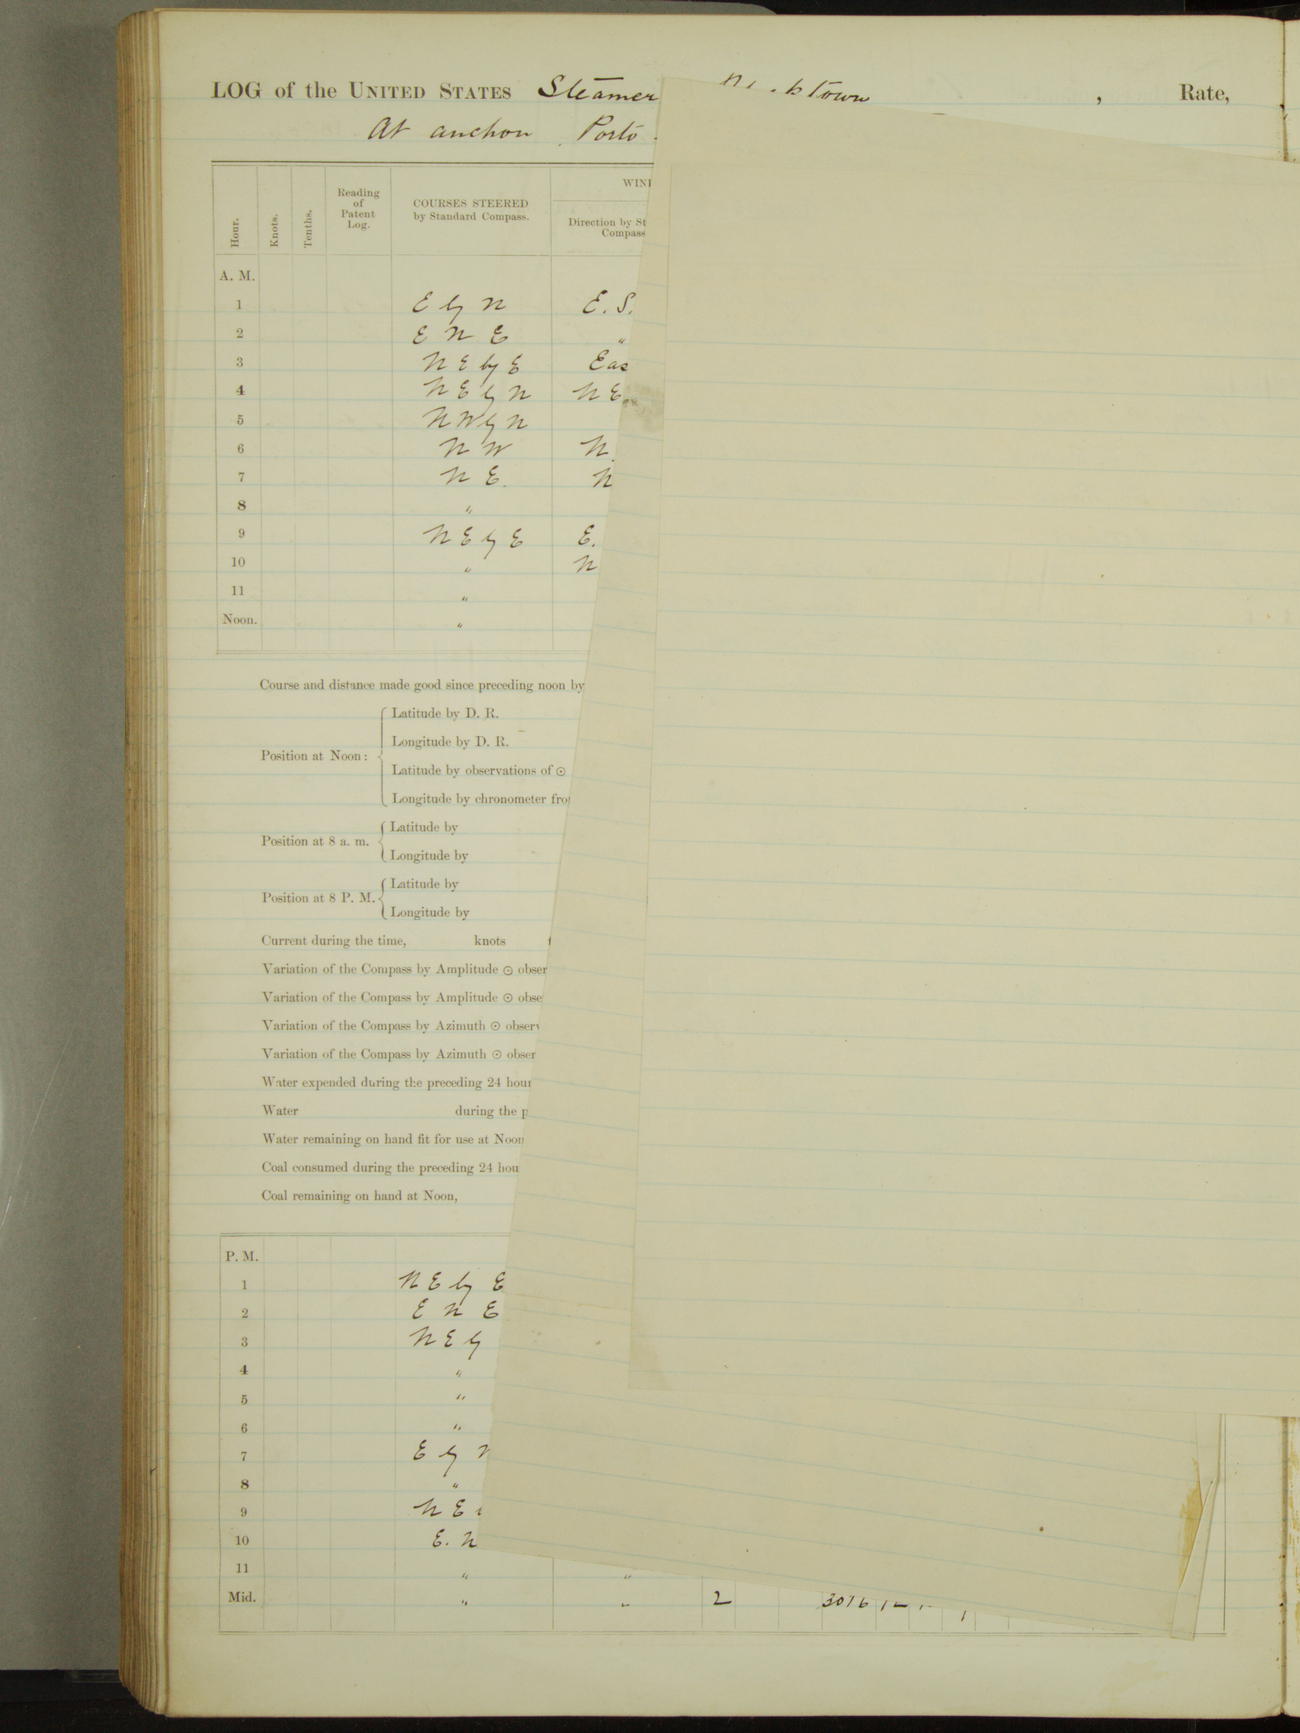 LOG of the UNITED STATES Steamer , Rate,
At anchor Porto
Hour. Knots. Tenths. Reading of Patent Log. COURSES STEERED by Standard Compass. WIN
Direction by St
Compass
A. M.
1 E by N E. S.
2 E N E "
3 N E by E Eas
4 N E by N N E
5 N W by N
6 N W N.
7 N E. N
8 "
9 N E by E E.
10 " N
11 "
Noon. "
Course and distance made good since preceding noon by
Position at Noon:
Latitude by D. R.
Longitude by D. R.
Latitude by observations of ☉
Longitude by chronometer fro
Position at 8 a. m.
Latitude by
Longitude by
Position at 8 P. M.
Latitude by
Longitude by
Current during the time, knots
Variation of the Compass by Amplitude ☉ obser
Variation of the Compass by Amplitude ☉ obse
Variation of the Compass by Azimuth ☉ observ
Variation of the Compass by Azimuth ☉ obser
Water expended during the preceding 24 hour
Water during the p
Water remaining on hand fit for use at Noon
Coal consumed during the preceding 24 hou
Coal remaining on hand at Noon,
P. M.
1 N E by E
2 E N E
3 N E by
4 "
5 "
6 "
7 E by N
8 "
9 N E
10 E. N
11 " "
Mid. " " 2 3016